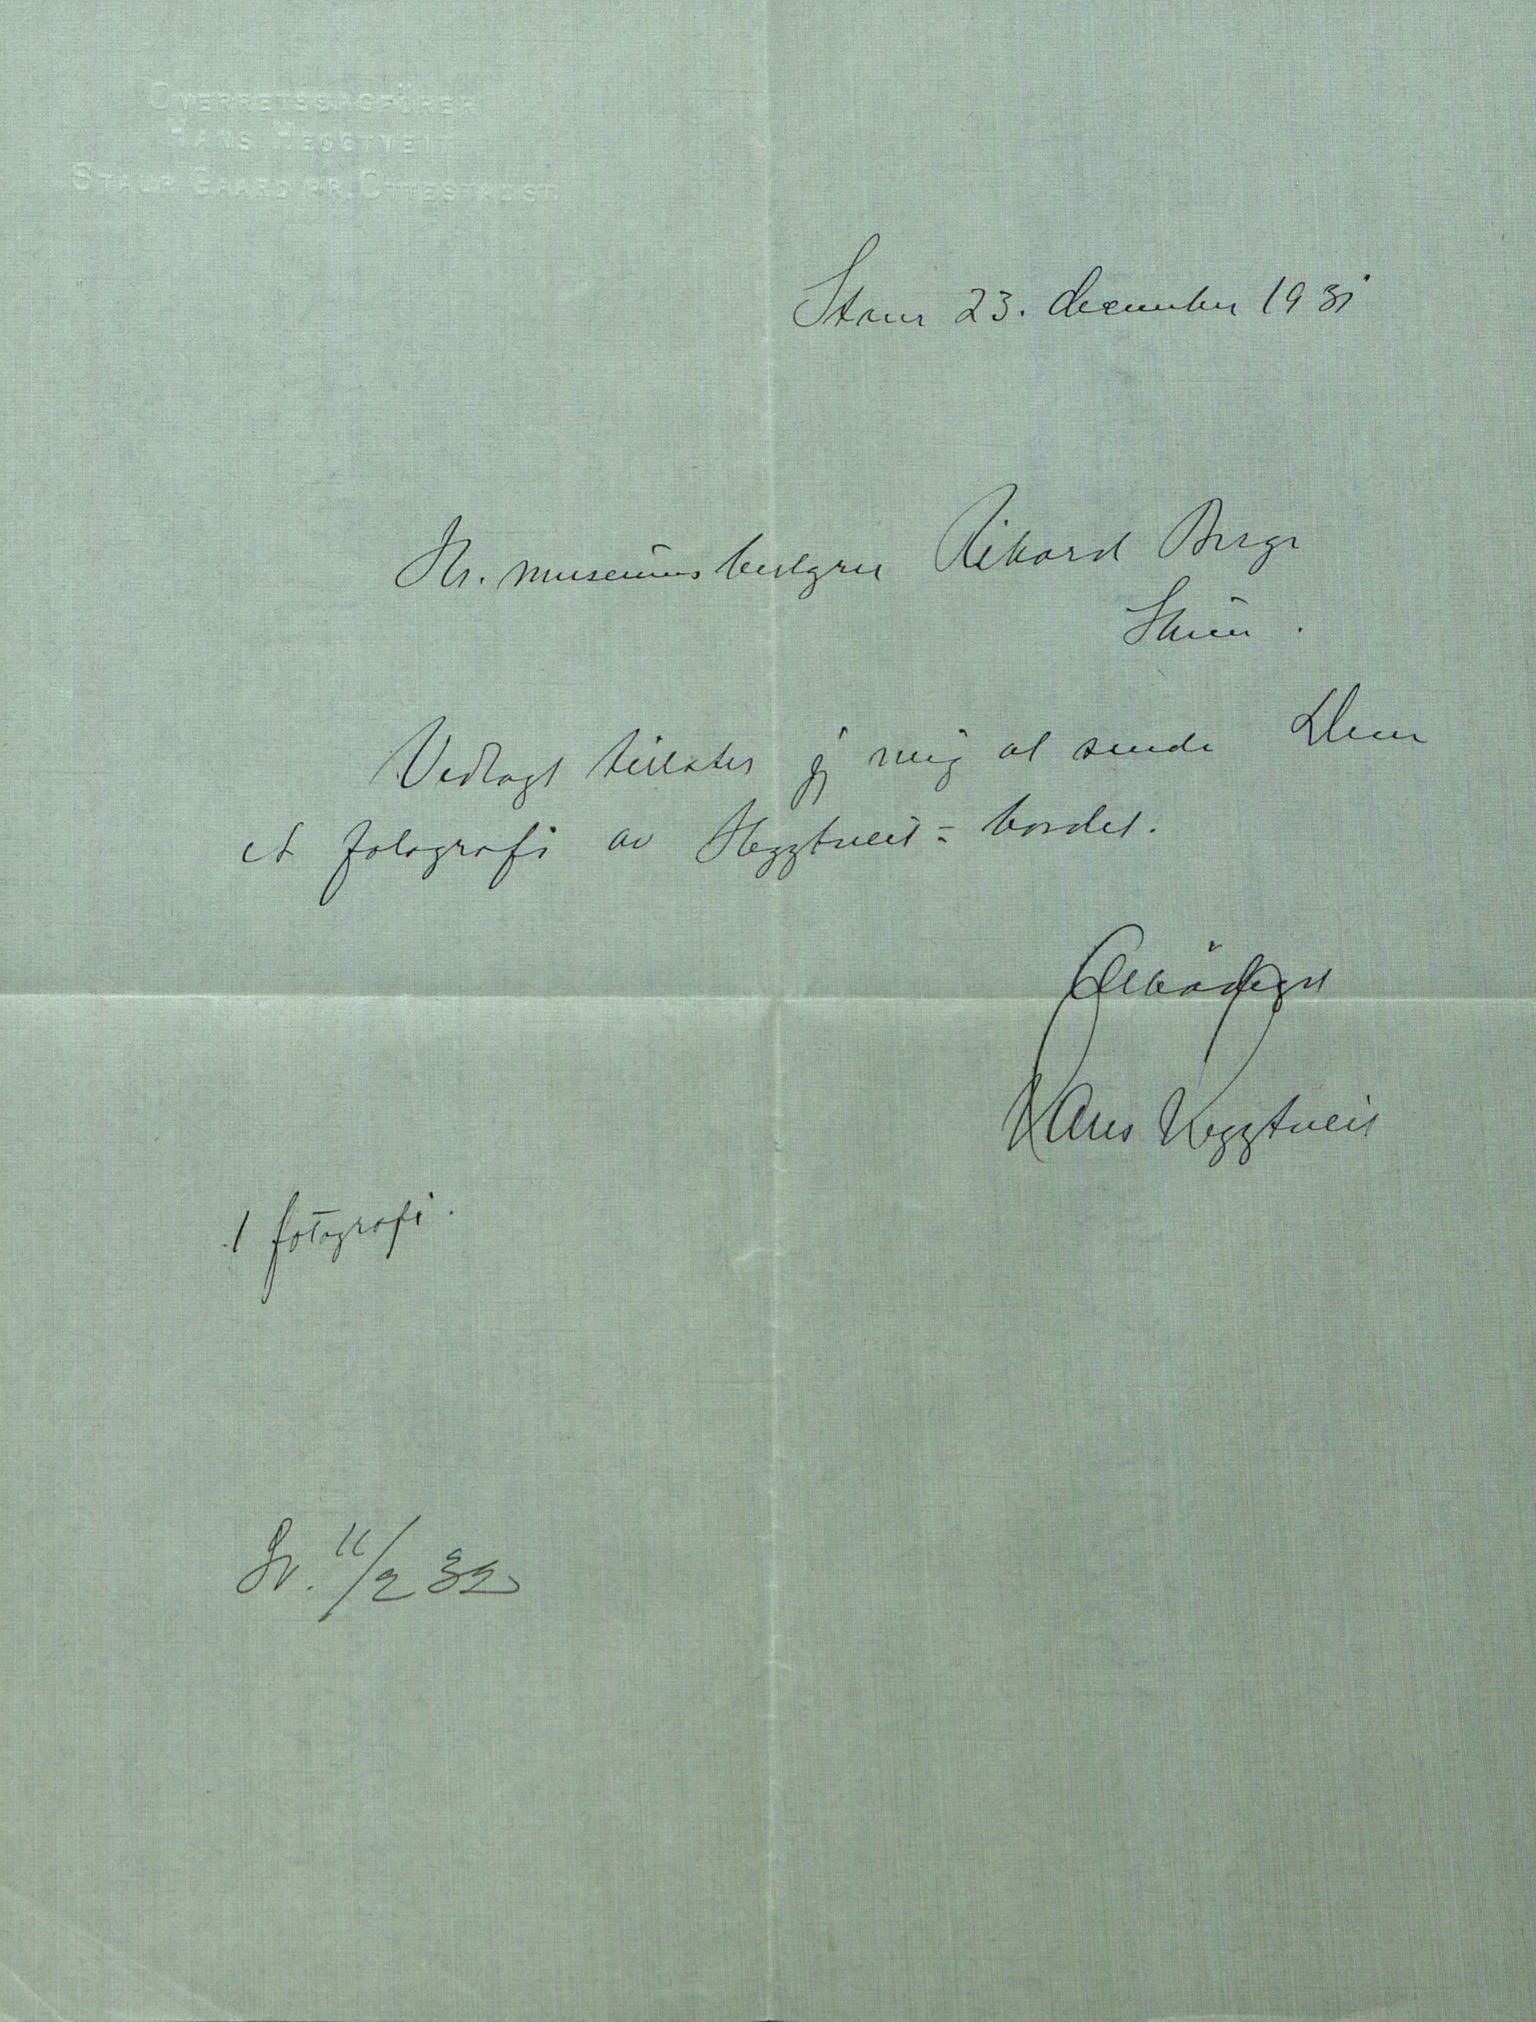 OVERRETSSAGFÖRER
HANS HEGGTVEIT
STAUR GAARD PR. OTTESTAD ST.
Staur 23. december 1931
Hr. museums bestyrer Rikard Berge
Skien.
Vedlagt tillater jeg mig at sende Dem
et fotografi av Heggtveit-bordet.
Ærbödigst
Hans Heggtveit
1 fotografi.
Sv. 11/2 32